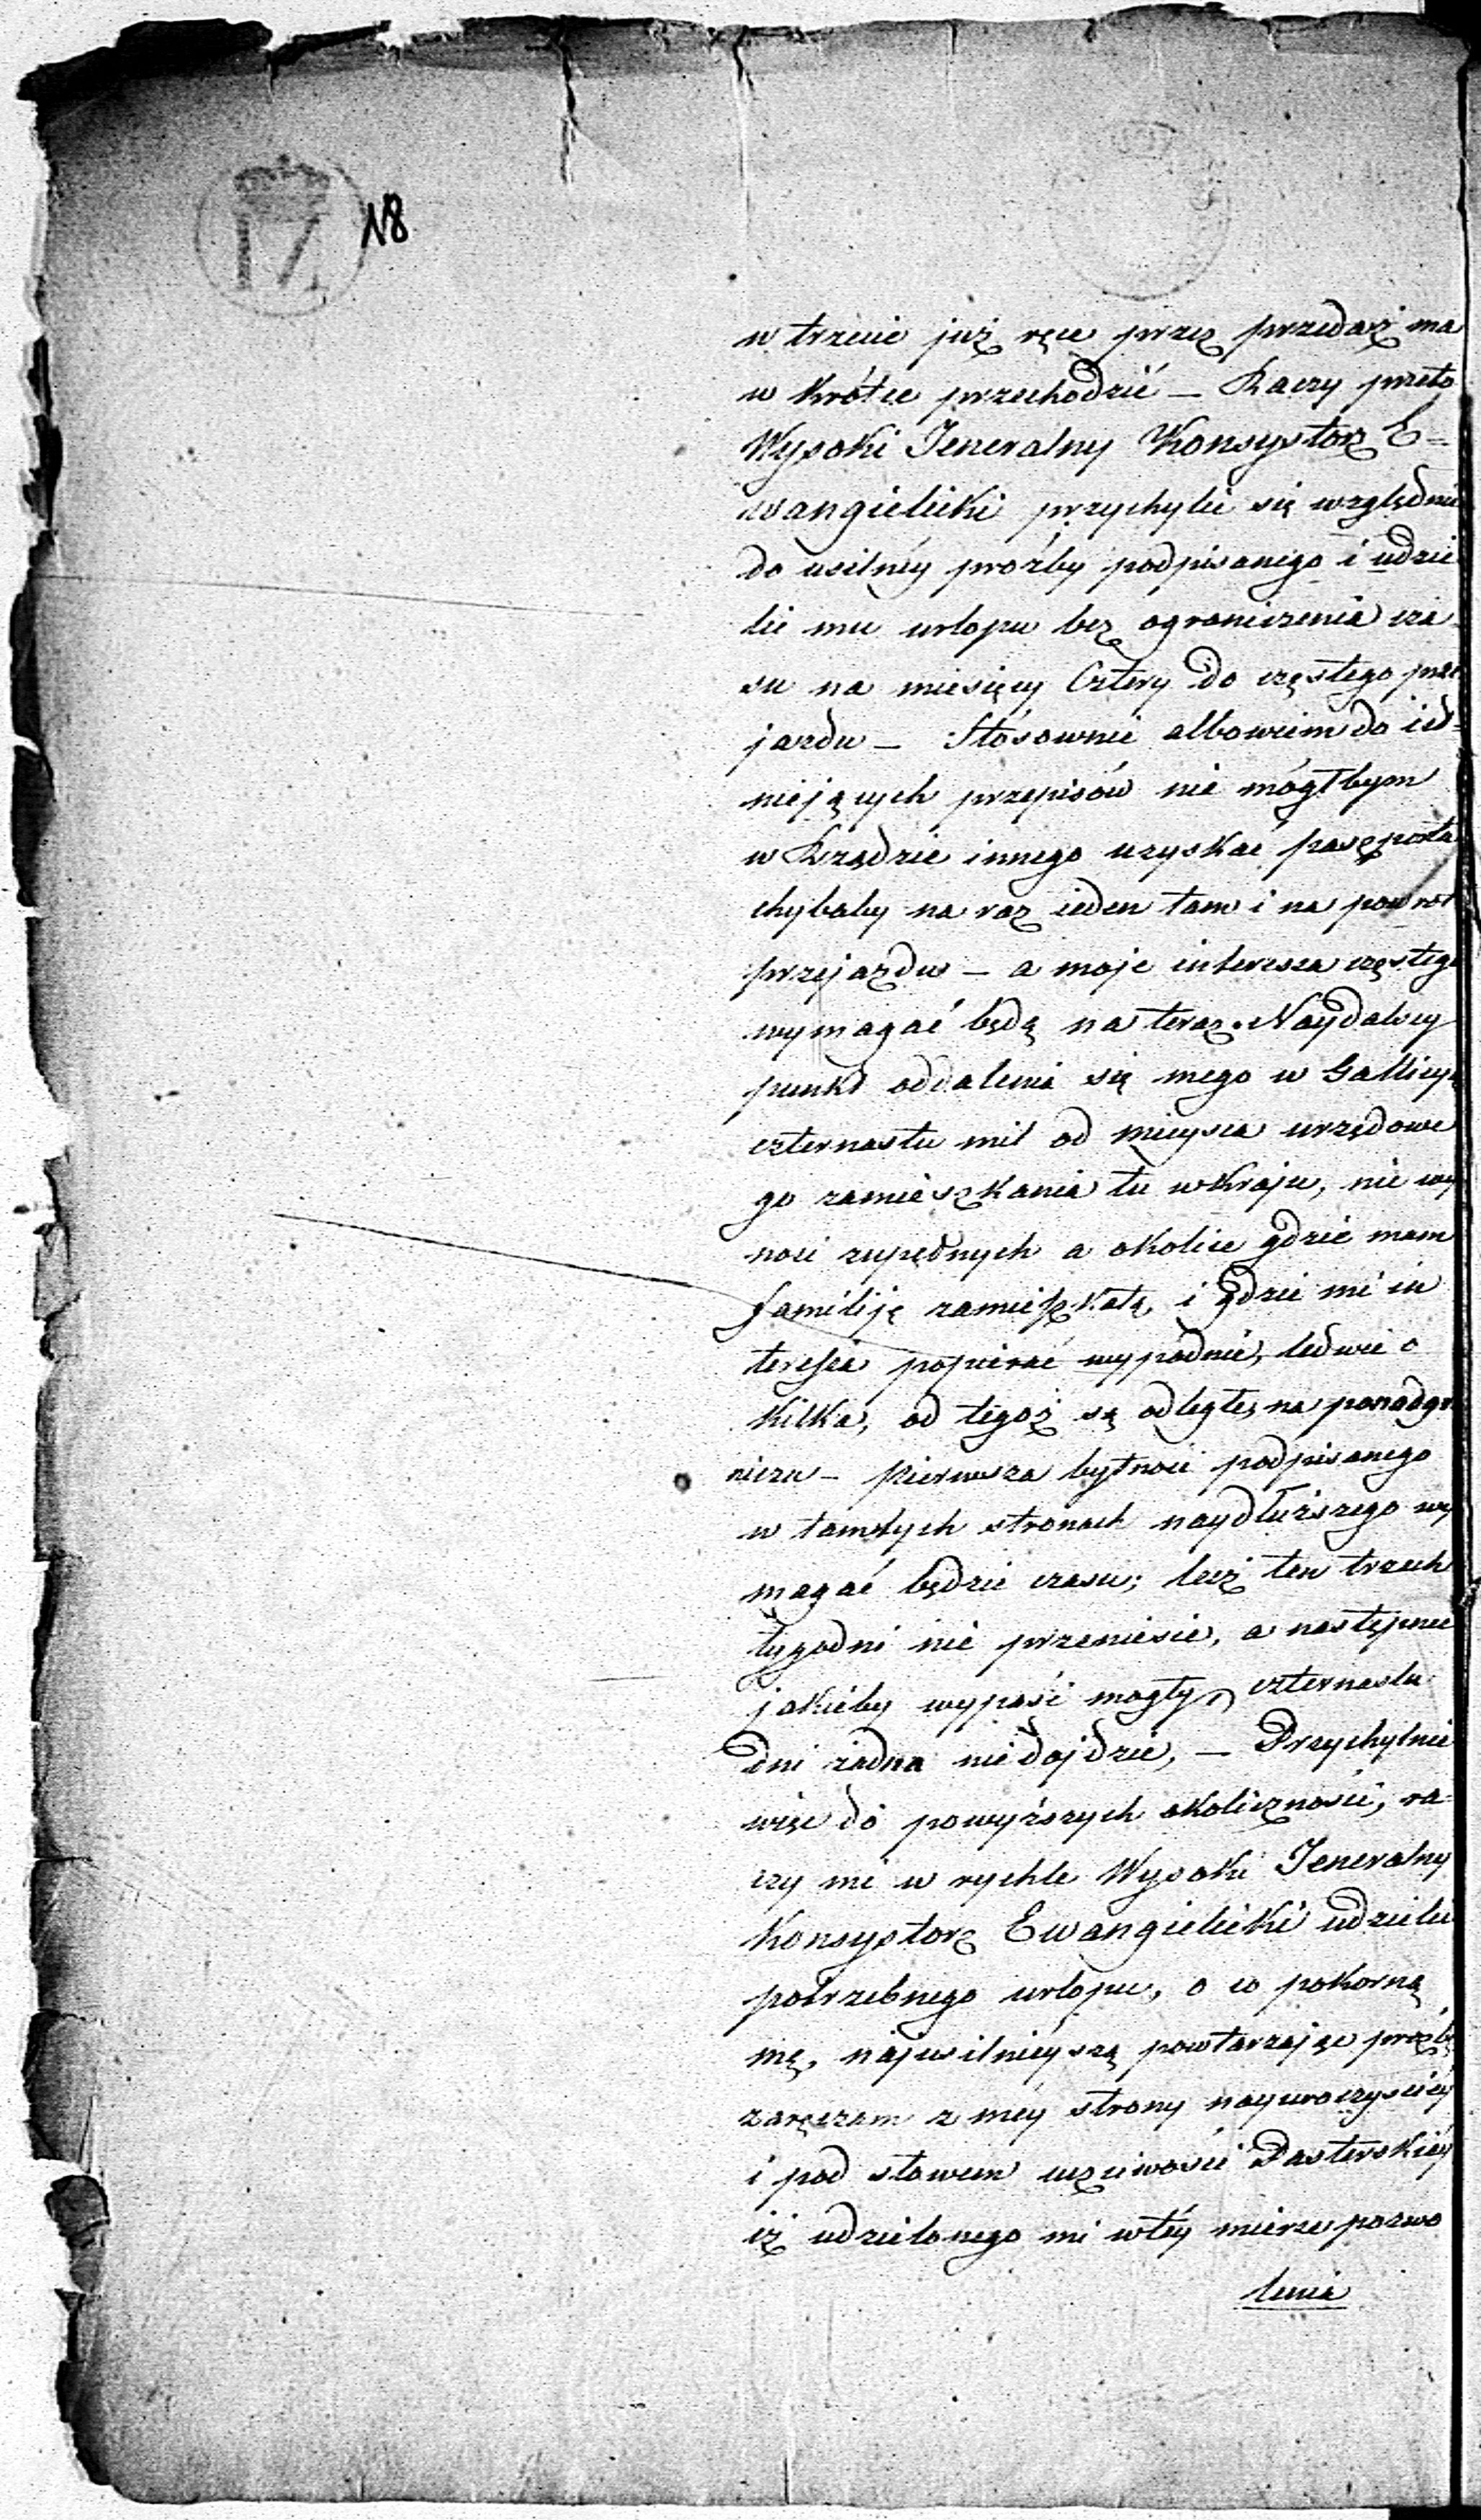 IZ N8
w trzecie już ręce przez przedaż ma
w krótce przechodzić — Raczy przeto
Wysoki Jeneralny Konsystorz E=
wangielicki przychylić się względnie
do usilnéy proźby podpisanego i udzie
lić mu urlopu bez ograniczenia cza-
su na miesięcy Cztery do częstego prze
jazdu — Stósownie albowiem do ist-
niejących przepisów nie mógłbym
w Rządzie innego uzyskać paszporta
chybaby na raz ieden tam i na powrot
przejazdu — a moje interesa częstego
wymagać będą na teraz. Naydalszy
punkt oddalenia się mego w Gallicyi
czternastu mil od mieysca urzędowe
go zamieszkania tu w kraju, nie wy
nosi zupełnych a okolice gdzie mam
familiję zamieszkałą, i gdzie mi in
teressa popierać wypadnie, ledwie o
kilka, od tegoż są odległe, na ponadgra
niczu — Pierwsza bytność podpisanego
w tamtych stronach naydłuższego wy
magać będzie czasu; lecz ten trzech
tygodni nie przeniesie, a następne
jakieby wypaść mogły, czternastu
dni żadna nie dojdzie, — Przychylnie
więc do powyższych okoliczności, ra-
czy mi w rychle Wysoki Jeneralny
Konsystorz Ewangielicki udzielić
potrzebnego urlopu, o co pokorną
mę, najusilnieyszą powtarzając proźbę
zaręczam z méy strony nayuroczyściéy
i pod słowem uczciwości Pasterskiéy
iż udzielonego mi w téy mierze pozwo
lenia